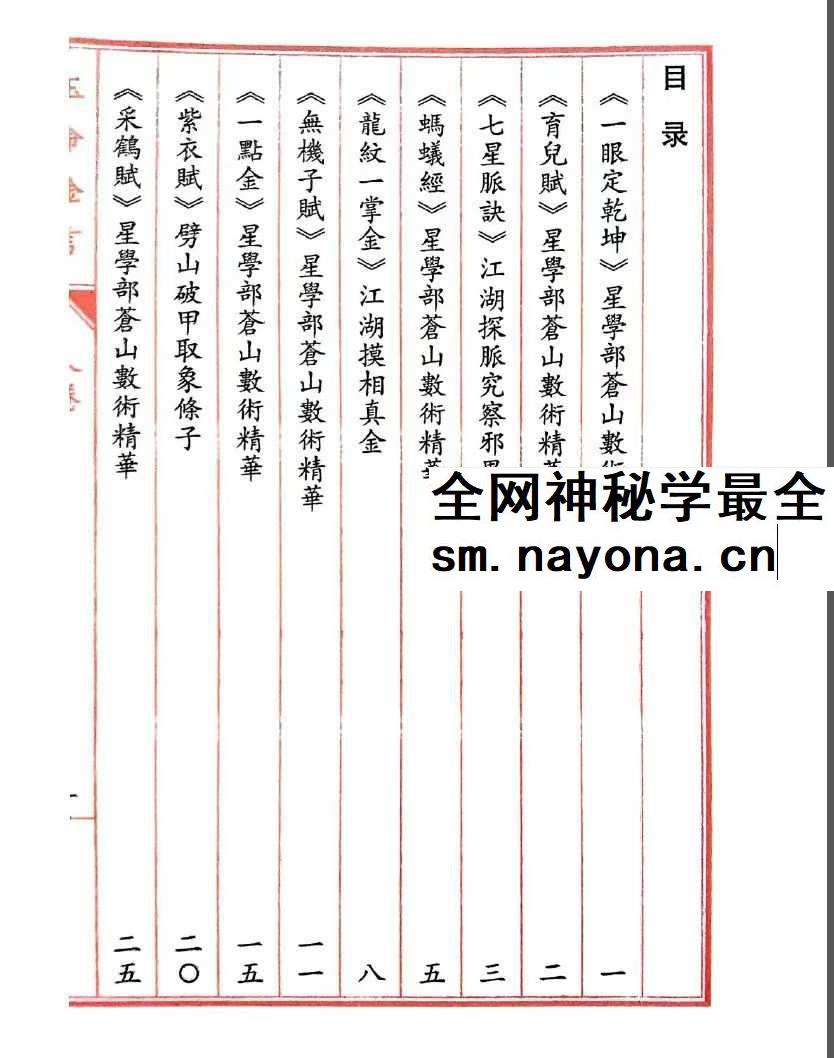 目录
《一眼定乾坤》星學部蒼山數術 一
《育兒賦》星學部蒼山數術精華 二
《七星脈訣》江湖探脈究察邪 三
《螞蟻經》星學部蒼山數術精華 五
《龍紋一掌金》江湖摸相真金 八
《無機子賦》星學部蒼山數術精華 一一
《一點金》星學部蒼山數術精華 一五
《紫衣賦》劈山破甲取象條子 二〇
《采鶴賦》星學部蒼山數術精華 二五
全网神秘学最全
sm.nayona.cn